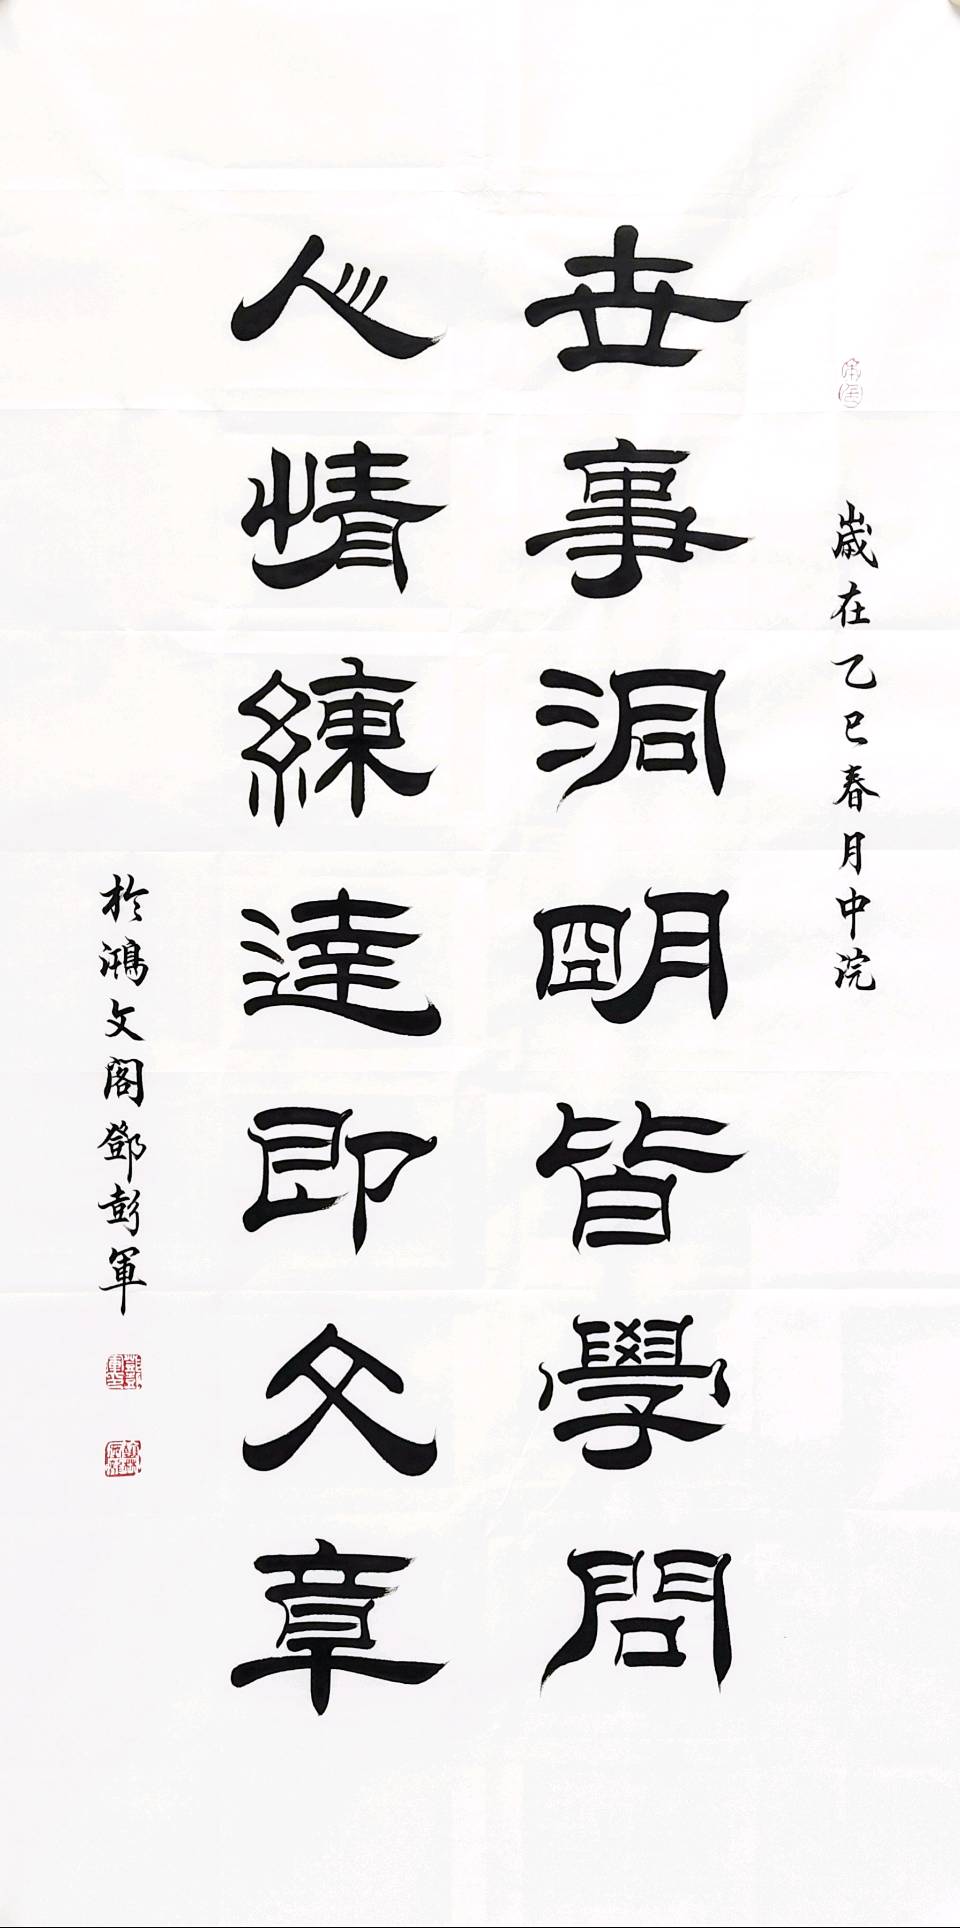 歲在乙巳春月中浣
世事洞明皆學問
人情練達即文章
於鴻文閣鄧彭軍